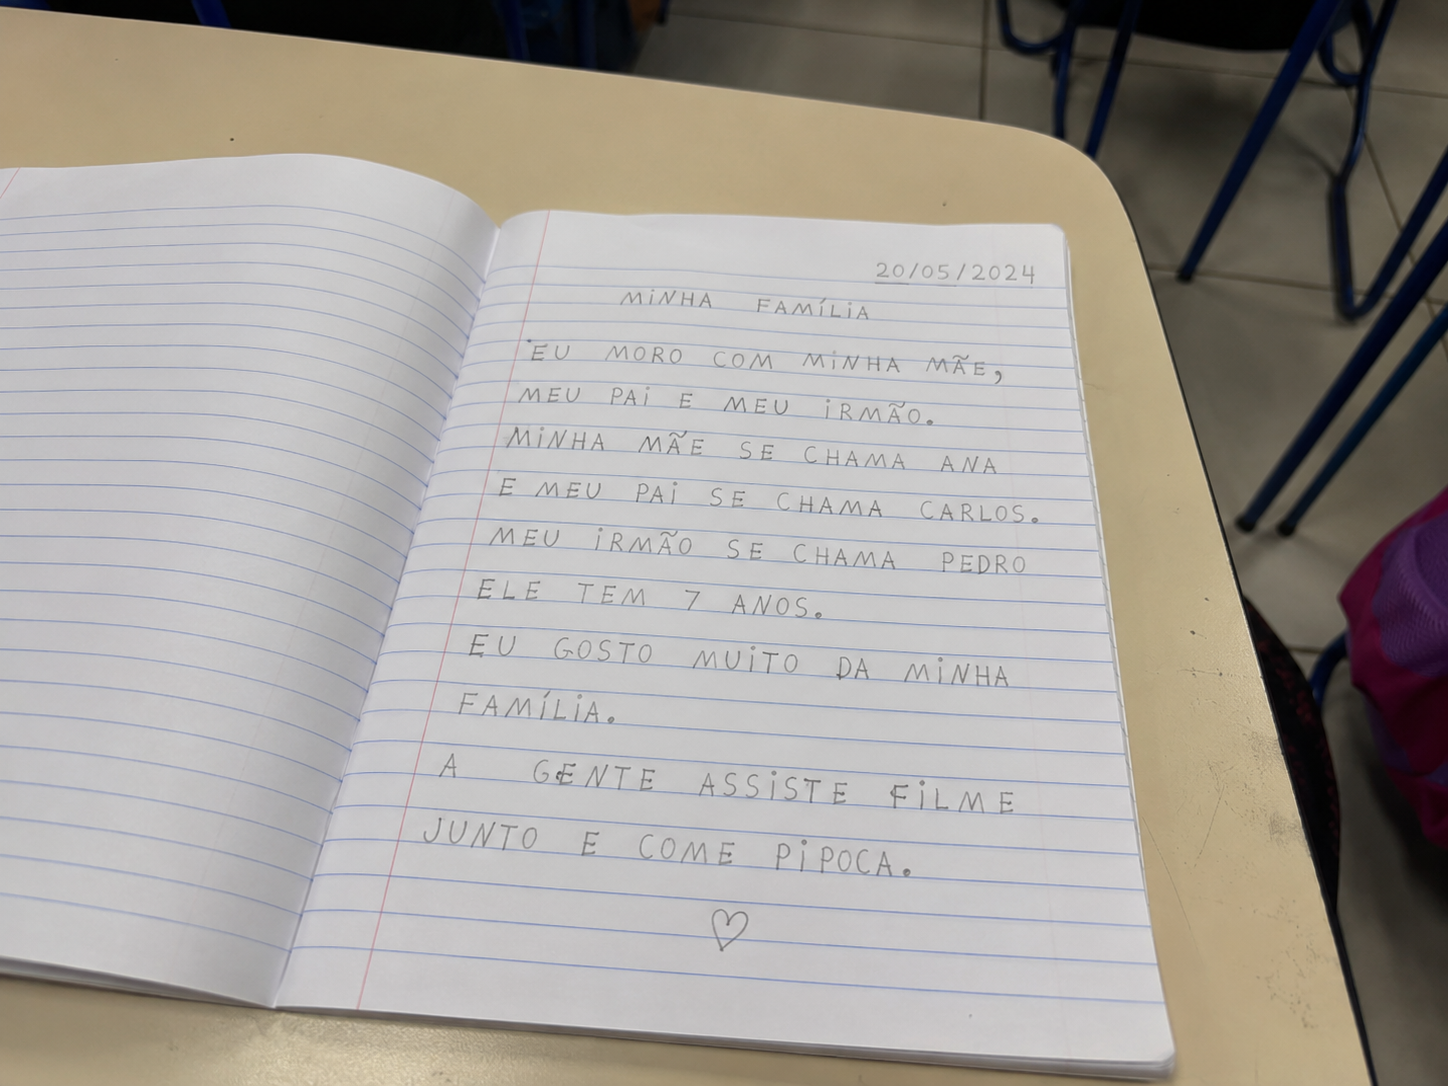 20/05/2024
MiNHA FAMÍLiA
EU MORO COM MiNHA MÃE,
MEU PAi E MEU iRMÃO.
MiNHA MÃE SE CHAMA ANA
E MEU PAi SE CHAMA CARLOS.
MEU iRMÃO SE CHAMA PEDRO
ELE TEM 7 ANOS.
EU GOSTO MUiTO DA MiNHA
FAMÍLiA.
A GENTE ASSiSTE FiLME
JUNTO E COME PiPOCA.